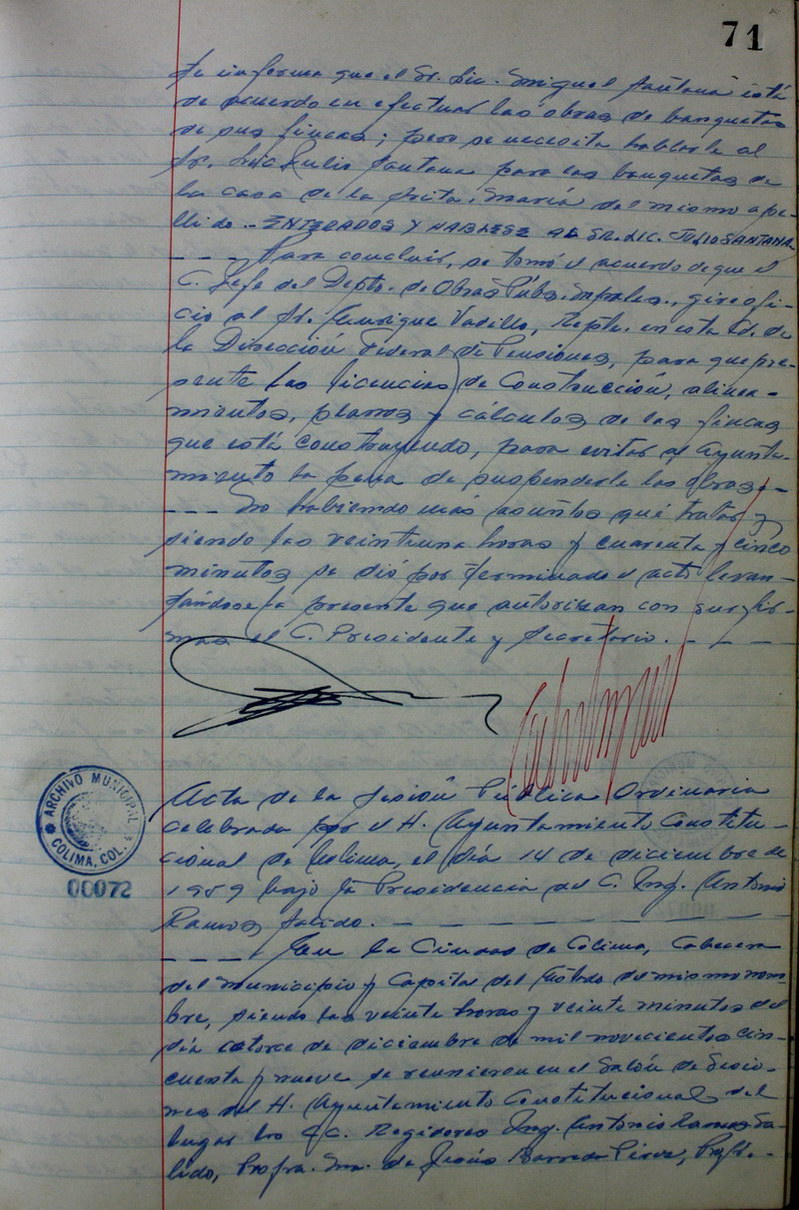 71
te informa que el Sr. Lic. Miguel Santana está
de acuerdo en efectuar las obras de banquetas
de sus fincas; pero se necesita hablarle al
Sr. Lic. Julio Santana para las banquetas de
la casa de la Srita. María del mismo ape-
llido.- ENTERADOS Y HABLESE AL SR. LIC. JULIO SANTANA.-
- - - Para concluir, se tomó el acuerdo de que el
C. Jefe del Depto. de Obras Púbs. Mpales., gire ofi-
cio al Sr. Enrique Vadillo, Repte. en esta Cd. de
la Dirección Federal de Pensiones, para que pre-
sente las licencias de Construcción, alinea-
mientos, planos y cálculos de las fincas
que está construyendo, para evitar al Ayunta-
miento la pena de suspenderle las obras.-
- - - No habiendo más asuntos que tratar y
siendo las veintiuna horas y cuarenta y cinco
minutos se dió por terminado el acto levan-
tándose la presente que autorizan con sus fir-
mas el C. Presidente y Secretario. - - -
ARCHIVO MUNICIPAL
COLIMA, COL.
00072
Acta de la Sesión Pública Ordinaria
celebrada por el H. Ayuntamiento Constitu-
cional de Colima, el día 14 de diciembre de
1959 bajo la Presidencia del C. Ing. Antonio
Ramos Salido. - - - - - -
- - - - En la Ciudad de Colima, Cabecera
del Municipio y Capital del Estado del mismo nom-
bre, siendo las veinte horas y veinte minutos del
día catorce de diciembre de mil novecientos cin-
cuenta y nueve se reunieron en el Salón de Sesio-
nes del H. Ayuntamiento Constitucional del
lugar los CC. Regidores Ing. Antonio Ramos Sa-
lido, Profra. Ma. de Jesús Barreda Pérez,